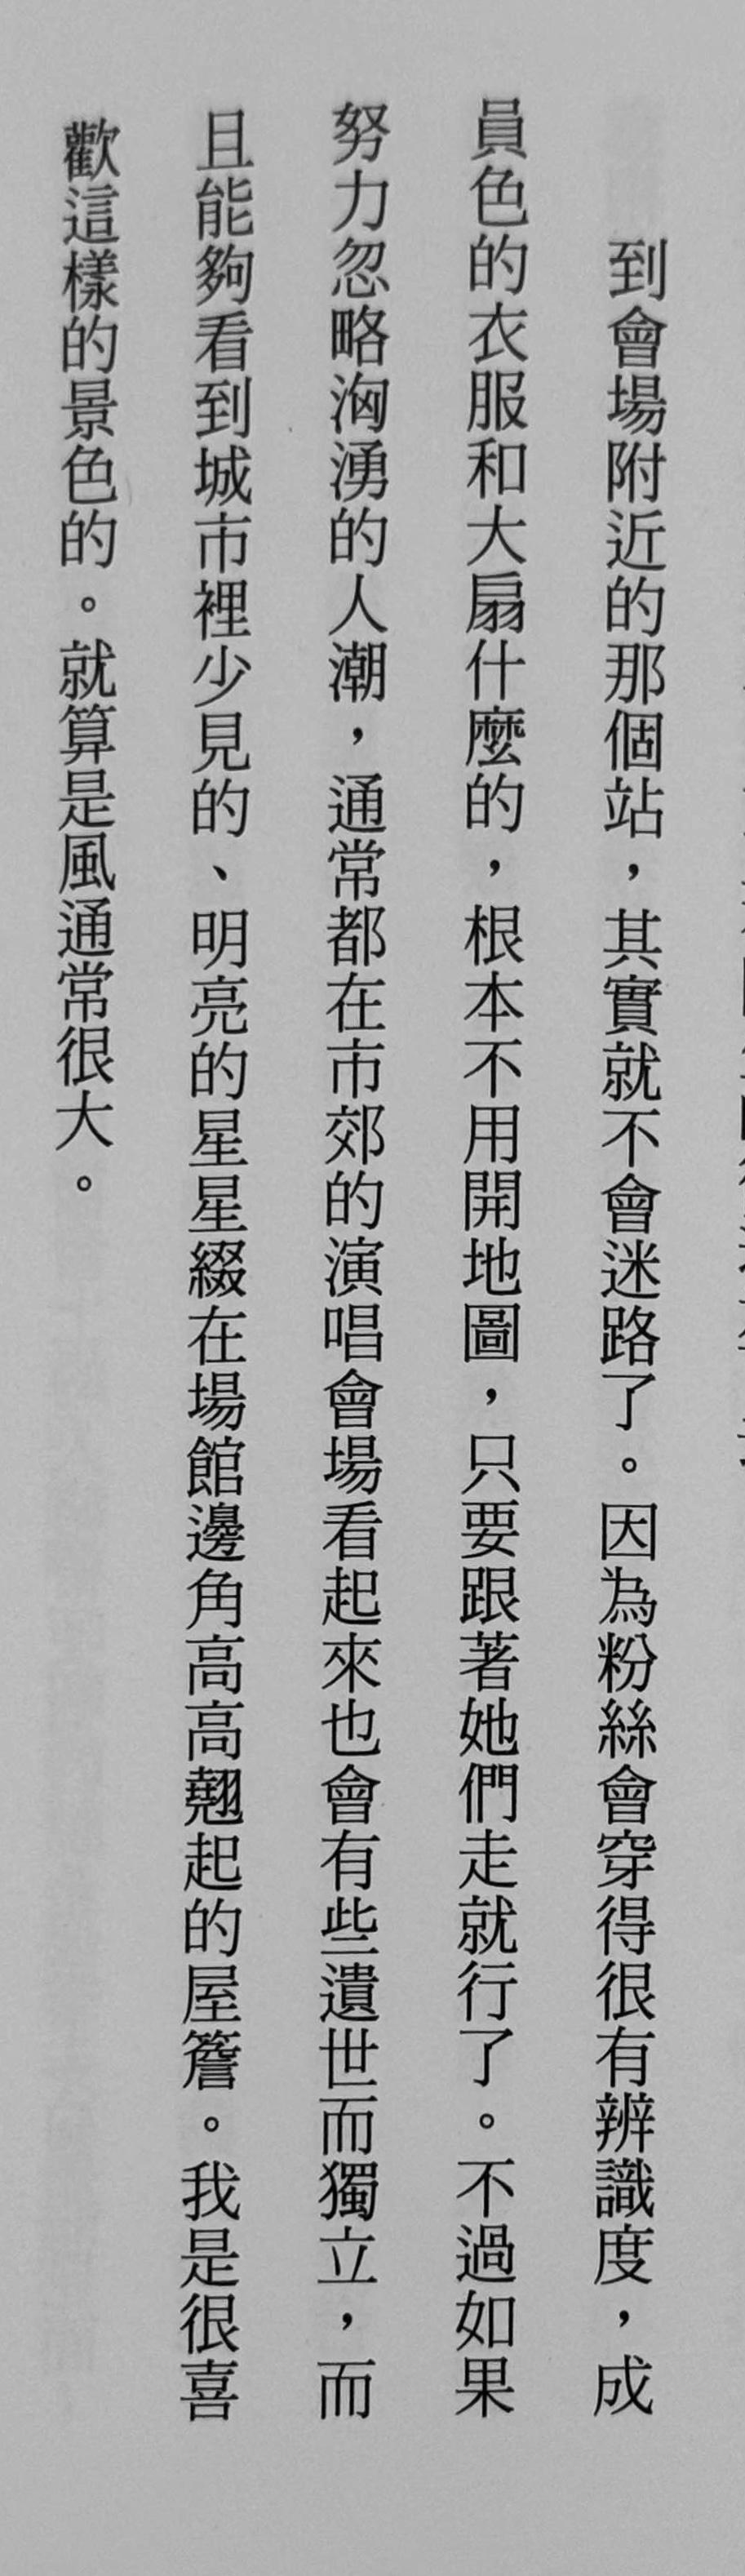 到會場附近的那個站，其實就不會迷路了。因為粉絲會穿得很有辨識度，成
員色的衣服和大扇什麼的，根本不用開地圖，只要跟著她們走就行了。不過如果
努力忽略洶湧的人潮，通常都在市郊的演唱會場看起來也會有些遺世而獨立，而
且能夠看到城市裡少見的、明亮的星星綴在場館邊角高高翹起的屋簷。我是很喜
歡這樣的景色的。就算是風通常很大。